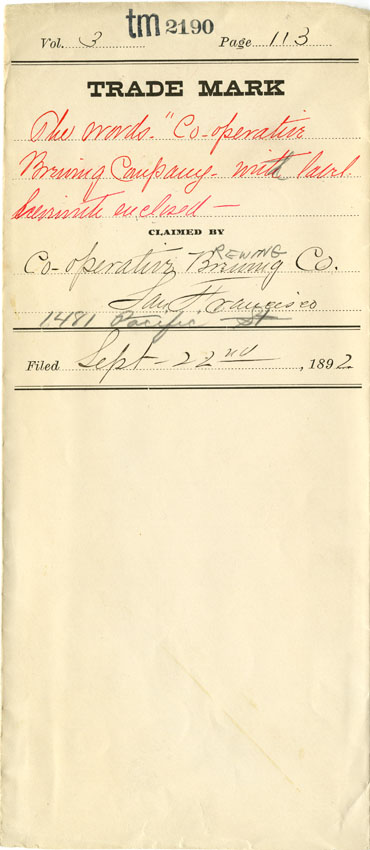 tm 2190
Vol. 3 Page 113
TRADE MARK
The words - "Co-operative
Brewing Company - with label
herewith enclosed -
CLAIMED BY
REWING
Co-operative Brewing Co.
San Francisco
1481 Pacific St
Filed Sept - 22nd, 1892.